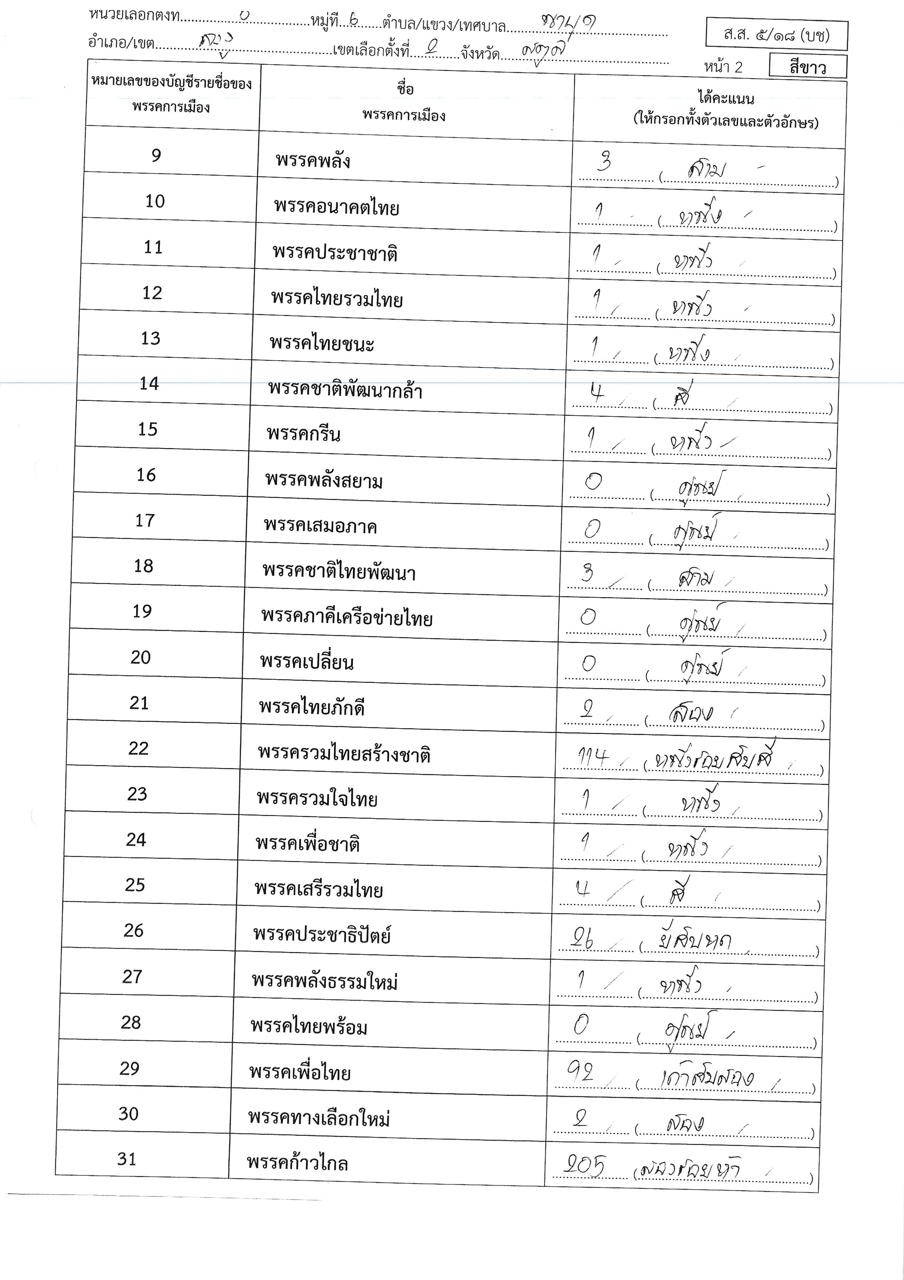 หน่วยเลือกตั้งที่ 8 หมู่ที่ 6 ตำบล/แขวง/เทศบาล
อำเภอ/เขต ละงู เขตเลือกตั้งที่ 2 จังหวัด สตูล
ส.ส. ๕/๑๘ (บช)
หน้า 2 สีขาว
หมายเลขของบัญชีรายชื่อของพรรคการเมือง ชื่อพรรคการเมือง ได้คะแนน
(ให้กรอกทั้งตัวเลขและตัวอักษร)
9 พรรคพลัง 3 (สาม)
10 พรรคอนาคตไทย 1 (หนึ่ง)
11 พรรคประชาชาติ 1 (หนึ่ง)
12 พรรคไทยรวมไทย 1 (หนึ่ง)
13 พรรคไทยชนะ 1 (หนึ่ง)
14 พรรคชาติพัฒนากล้า 4 (สี่)
15 พรรคกรีน 1 (หนึ่ง)
16 พรรคพลังสยาม 0 (ศูนย์)
17 พรรคเสมอภาค 0 (ศูนย์)
18 พรรคชาติไทยพัฒนา 3 (สาม)
19 พรรคภาคีเครือข่ายไทย 0 (ศูนย์)
20 พรรคเปลี่ยน 0 (ศูนย์)
21 พรรคไทยภักดี 2 (สอง)
22 พรรครวมไทยสร้างชาติ 114 (หนึ่งร้อยสิบสี่)
23 พรรครวมใจไทย 1 (หนึ่ง)
24 พรรคเพื่อชาติ 1 (หนึ่ง)
25 พรรคเสรีรวมไทย 4 (สี่)
26 พรรคประชาธิปัตย์ 26 (ยี่สิบหก)
27 พรรคพลังธรรมใหม่ 1 (หนึ่ง)
28 พรรคไทยพร้อม 0 (ศูนย์)
29 พรรคเพื่อไทย 92 (เก้าสิบสอง)
30 พรรคทางเลือกใหม่ 2 (สอง)
31 พรรคก้าวไกล 205 (สองร้อยห้า)